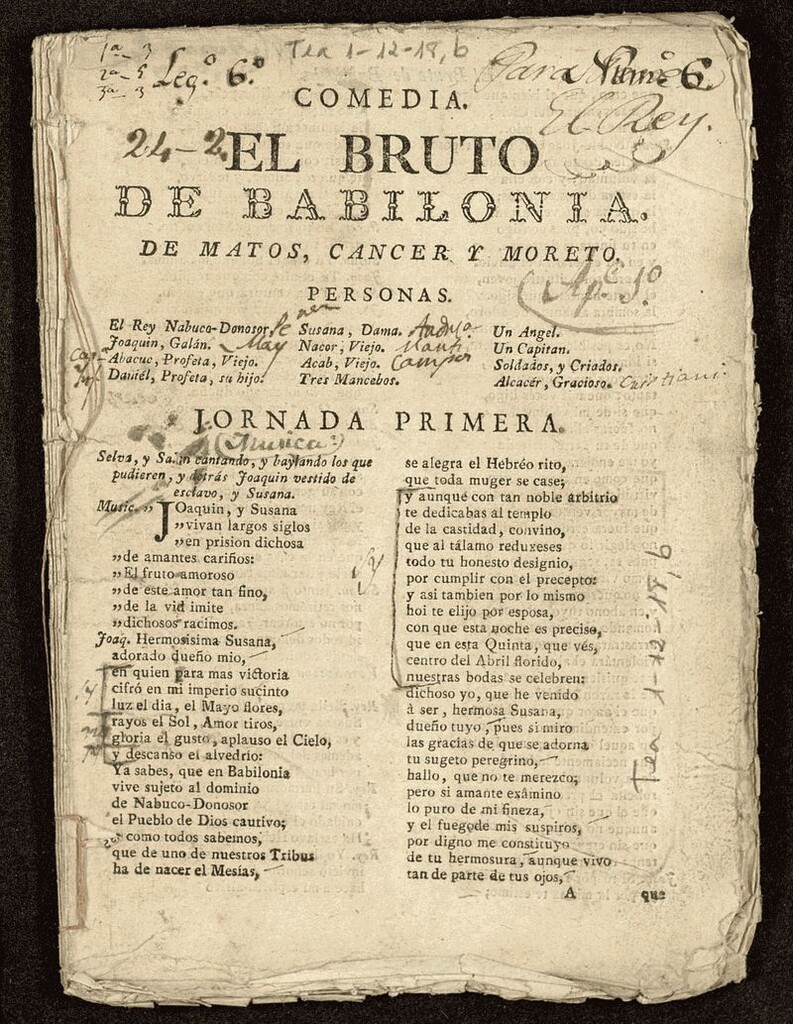 1ª 3
2ª 5
3ª 3
Legº. 6º
Tea 1-12-18,6
Para
6
El Rey.
COMEDIA.
24-2
EL BRUTO
DE BABILONIA.
DE MATOS, CANCER Y MORETO.
PERSONAS.
El Rey Nabuco-Donosor.
Joaquin, Galán.
Abacuc, Profeta, Viejo.
Daniél, Profeta, su hijo.
Susana, Dama.
Nacor, Viejo.
Acab, Viejo.
Tres Mancebos.
Un Angel.
Un Capitan.
Soldados, y Criados.
Alcacér, Gracioso.
JORNADA PRIMERA.
(Musica)
Selva, y Salen cantando, y baylando los que
pudieren, y detrás Joaquin vestido de
esclavo, y Susana.
Music. „ JOaquin, y Susana
„ vivan largos siglos
„ en prision dichosa
„ de amantes cariños:
„ El fruto amoroso
„ de este amor tan fino,
„ de la vid imite
„ dichosos racimos.
Joaq. Hermosisima Susana,
adorado dueño mio,
en quien para mas victoria
cifró en mi imperio sucinto
luz el dia, el Mayo flores,
rayos el Sol, Amor tiros,
gloria el gusto, aplauso el Cielo,
y descanso el alvedrio:
Ya sabes, que en Babilonia
vive sujeto al dominio
de Nabuco-Donosor
el Pueblo de Dios cautivo;
y como todos sabemos,
que de uno de nuestros Tribus
ha de nacer el Mesías,
se alegra el Hebréo rito,
que toda muger se case;
y aunque con tan noble arbitrio
te dedicabas al templo
de la castidad, convino,
que al tálamo reduxeses
todo tu honesto designio,
por cumplir con el precepto:
y asi tambien por lo mismo
hoi te elijo por esposa,
con que esta noche es preciso,
que en esta Quinta, que vés,
centro del Abril florido,
nuestras bodas se celebren:
dichoso yo, que he venido
á ser, hermosa Susana,
dueño tuyo, pues si miro
las gracias de que se adorna
tu sugeto peregrino,
hallo, que no te merezco;
pero si amante exâmino
lo puro de mi fineza,
y el fuegode mis suspiros,
por digno me constituyo
de tu hermosura, aunque vivo
tan de parte de tus ojos,
A que
Tea 1-12-18,6